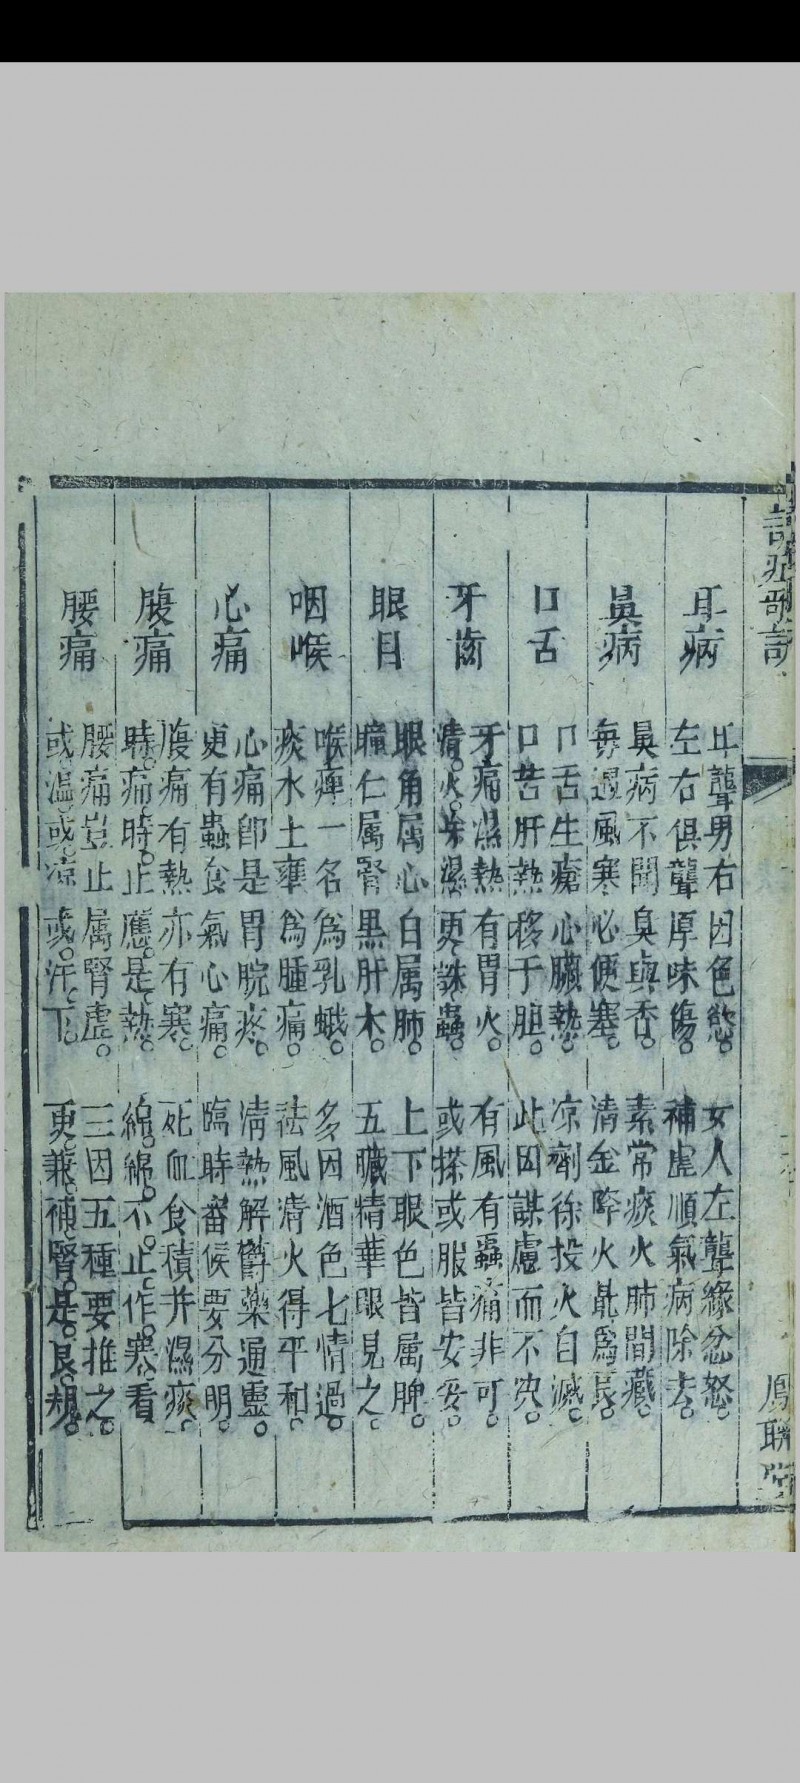 耳病
耳聾男右因色慾。女人左聾緣忿怒。
左右俱聾厚味傷。補虛順氣病除去。
鼻病
鼻病不聞臭與香。素常痰火肺間藏。
每遇風寒必便塞。清金降火最爲良。
口舌
口舌生瘡心臟熱。凉劑徐投火自滅。
口苦肝熱移于胆。此因謀慮而不决。
牙齒
牙痛濕熱有胃火。有風有蟲痛非可。
清。火。除濕。更。誅。蟲。或搽或服皆安妥。
眼目
眼角属心白属肺。上下眼色皆属脾。
瞳仁属腎黒肝木。五臟精華眼見之。
咽喉
喉痺一名爲乳蛾。多因酒色七情過。
痰水土壅爲腫痛。祛風清火得平和。
心痛
心痛卽是胃脘疼。清熱解欝藥通靈。
更有蟲食氣心痛。臨時審候要分明。
腹痛
腹痛有熱亦有寒。死血食積并濕痰。
時。痛時。止應。是。熱。綿。綿。不。止。作。寒。看
腰痛
腰痛豈止属腎虛。三因五種要推之。
或溫。或凉或。汗。下。更。兼。補。腎。是。良。規。
鳳聯堂